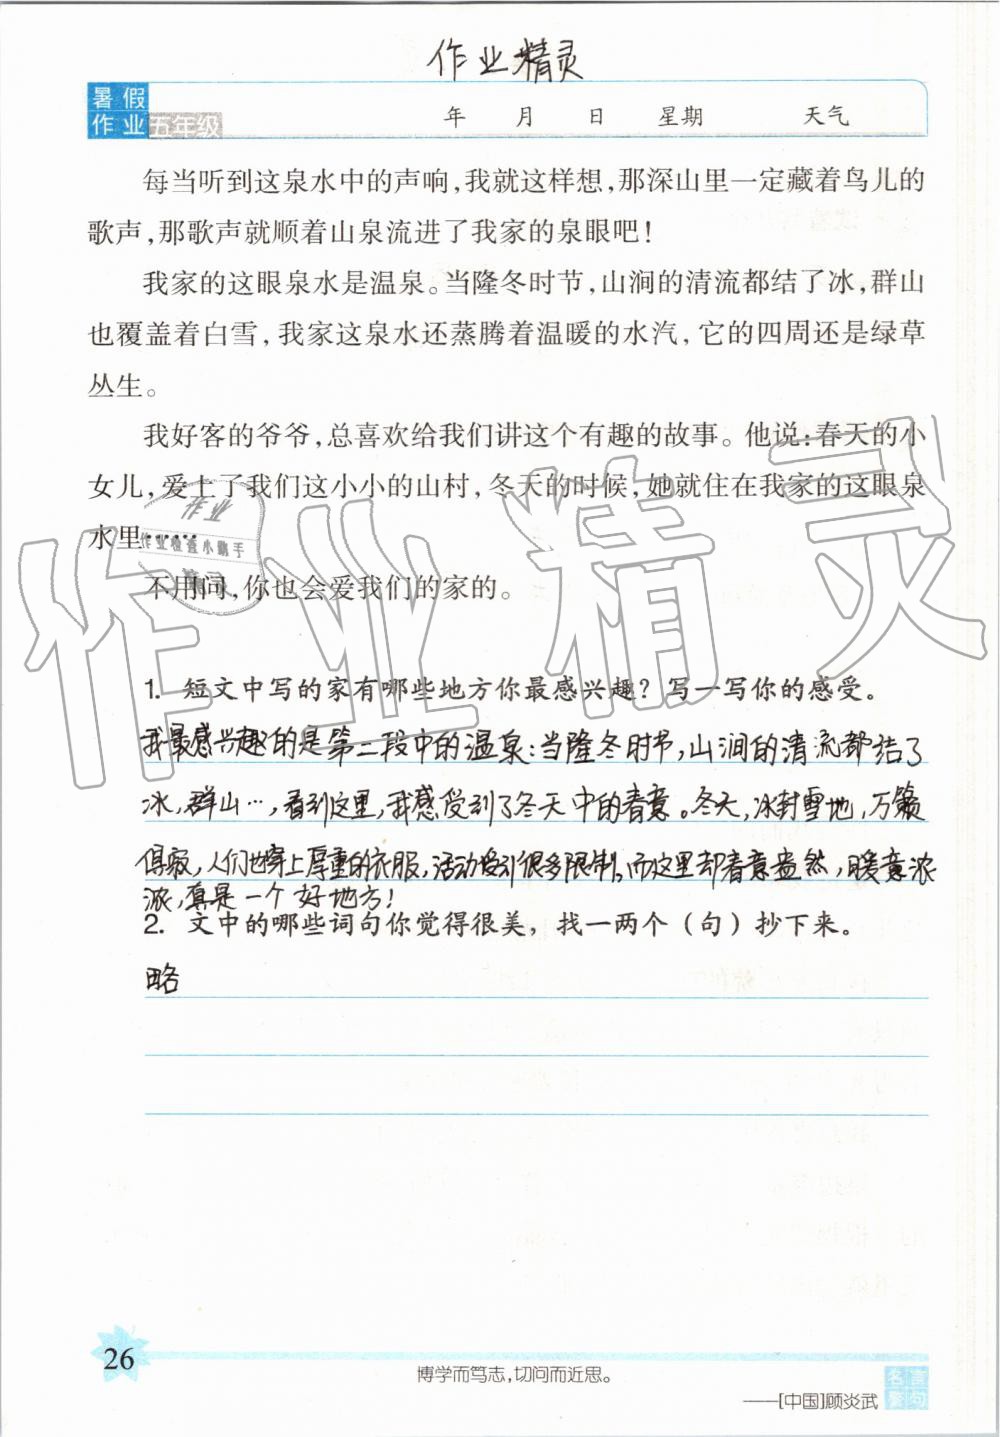 作业精灵
暑假
作业 五年级 年 月 日 星期 天气
每当听到这泉水中的声响，我就这样想，那深山里一定藏着鸟儿的
歌声，那歌声就顺着山泉流进了我家的泉眼吧！
我家的这眼泉水是温泉。当隆冬时节，山涧的清流都结了冰，群山
也覆盖着白雪，我家这泉水还蒸腾着温暖的水汽，它的四周还是绿草
丛生。
我好客的爷爷，总喜欢给我们讲这个有趣的故事。他说：春天的小
女儿，爱上了我们这小小的山村，冬天的时候，她就住在我家的这眼泉
水里……
不用问，你也会爱我们的家的。
作业精灵
作业
作业检查小助手
精灵
1. 短文中写的家有哪些地方你最感兴趣？写一写你的感受。
我最感兴趣的是第二段中的温泉：当隆冬时节，山涧的清流都结了
冰，群山…，看到这里，我感受到了冬天中的春意。冬天，冰封雪地，万籁
俱寂，人们也穿上厚重的衣服，活动受到很多限制，而这里却春意盎然，暖意浓
浓，真是一个好地方！
2. 文中的哪些词句你觉得很美，找一两个（句）抄下来。
略
26
博学而笃志，切问而近思。
——[中国]顾炎武
名言
警句